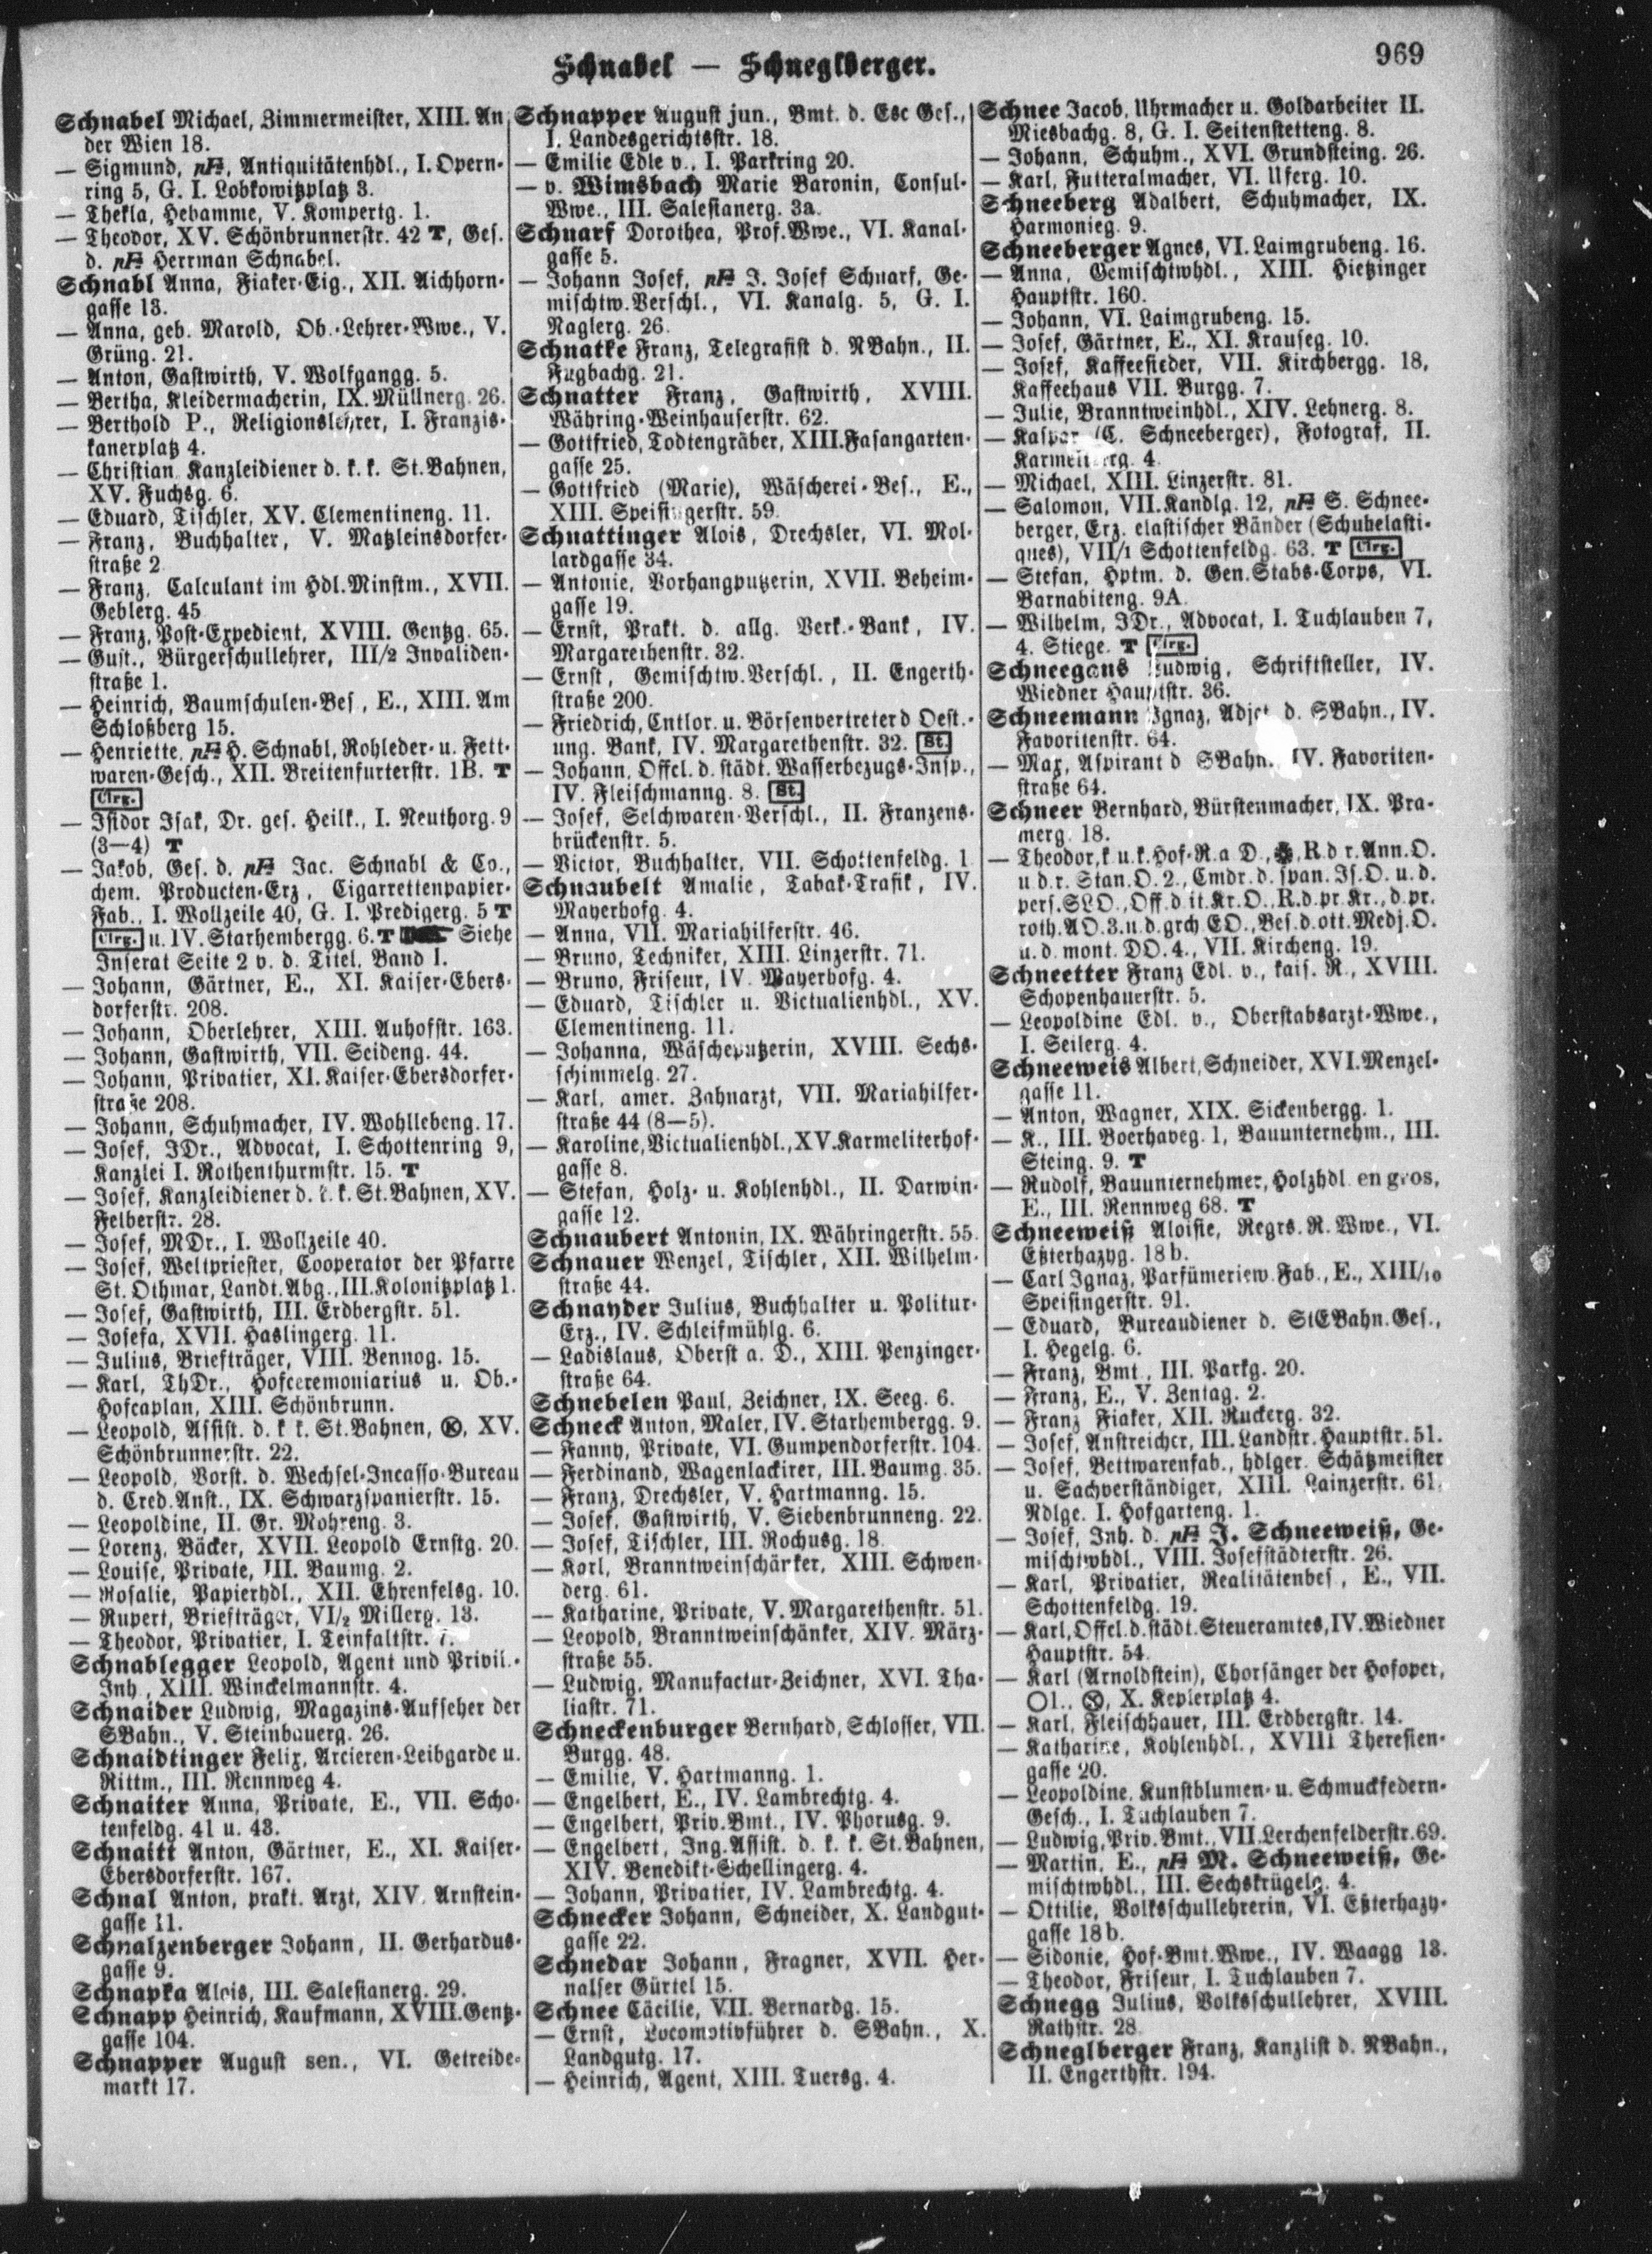 Schnabel — Schneglberger.
969
Schnabel Michael, Zimmermeister, XIII. An
der Wien 18.
— Sigmund, Antiquitätenhdl., I. Opern-
ring 5, G. I. Lobkowitzplatz 3.
— Thekla, Hebamme, V. Kompertg. 1.
— Theodor, XV. Schönbrunnerstr. 42 T, Ges.
d. Herrman Schnabel.
Schnabl Anna, Fiaker-Eig., XII. Aichhorn-
gasse 13.
— Anna, geb. Marold, Ob.-Lehrer-Wwe., V.
Grüng. 21.
— Anton, Gastwirth, V. Wolfgangg. 5.
— Bertha, Kleidermacherin, IX. Müllnerg. 26.
— Berthold P., Religionslehrer, I. Franzis-
kanerplatz 4.
— Christian Kanzleidiener d. k. k. St.Bahnen,
XV. Fuchsg. 6.
— Eduard, Tischler, XV. Clementineng. 11.
— Franz, Buchhalter, V. Matzleinsdorfer-
straße 2
— Franz, Calculant im Hdl.Minstm., XVII.
Geblerg. 45
— Franz, Post-Expedient, XVIII. Gentzg. 65.
— Gust., Bürgerschullehrer, III/2 Invaliden-
straße 1.
— Heinrich, Baumschulen-Bes., E., XIII. Am
Schloßberg 15.
— Henriette, H. Schnabl, Rohleder- u. Fett-
waren-Gesch., XII. Breitenfurterstr. 1B. T
Clrg.
— Isidor Isak, Dr. ges. Heilk., I. Neuthorg. 9
(3—4) T
— Jakob, Ges. d. Jac. Schnabl & Co.,
chem. Producten-Erz., Cigarrettenpapier-
Fab., I. Wollzeile 40, G. I. Predigerg. 5 T
Clrg. u. IV. Starhembergg. 6. T Siehe
Inserat Seite 2 v. d. Titel, Band I.
— Johann, Gärtner, E., XI. Kaiser-Ebers-
dorferstr. 208.
— Johann, Oberlehrer, XIII. Auhofstr. 163.
— Johann, Gastwirth, VII. Seideng. 44.
— Johann, Privatier, XI. Kaiser-Ebersdorfer-
straße 208.
— Johann, Schuhmacher, IV. Wohllebeng. 17.
— Josef, JDr., Advocat, I. Schottenring 9,
Kanzlei I. Rothenthurmstr. 15. T
— Josef, Kanzleidiener d. k. k. St.Bahnen, XV.
Felberstr. 28.
— Josef, MDr., I. Wollzeile 40.
— Josef, Weltpriester, Cooperator der Pfarre
St. Othmar, Landt. Abg., III. Kolonitzplatz 1.
— Josef, Gastwirth, III. Erdbergstr. 51.
— Josefa, XVII. Haslingerg. 11.
— Julius, Briefträger, VIII. Bennog. 15.
— Karl, ThDr., Hofceremoniarius u. Ob.-
Hofcaplan, XIII. Schönbrunn.
— Leopold, Assist. d. k k. St.Bahnen, Ⓚ, XV.
Schönbrunnerstr. 22.
— Leopold, Vorst. d. Wechsel-Incasso-Bureau
d. Cred. Anst., IX. Schwarzspanierstr. 15.
— Leopoldine, II. Gr. Mohreng. 3.
— Lorenz, Bäcker, XVII. Leopold Ernstg. 20.
— Louise, Private, III. Baumg. 2.
— Rosalie, Papierhdl., XII. Ehrenfelsg. 10.
— Rupert, Briefträger, VI/2 Millerg. 13.
— Theodor, Privatier, I. Teinfaltstr. 7.
Schnablegger Leopold, Agent und Privil.-
Inh., XIII. Winckelmannstr. 4.
Schnaider Ludwig, Magazins-Aufseher der
SBahn., V. Steinbauerg. 26.
Schnaidtinger Felix, Arcieren-Leibgarde u.
Rittm., III. Rennweg 4.
Schnaiter Anna, Private, E., VII. Scho-
tenfeldg. 41 u. 43.
Schnaitt Anton, Gärtner, E., XI. Kaiser-
Ebersdorferstr. 167.
Schnal Anton, prakt. Arzt, XIV. Arnstein-
gasse 11.
Schnalzenberger Johann, II. Gerhardus-
gasse 9.
Schnapka Alois, III. Salesianerg. 29.
Schnapp Heinrich, Kaufmann, XVIII. Gentz-
gasse 104.
Schnapper August sen., VI. Getreide-
markt 17.
Schnapper August jun., Bmt. d. Esc Ges.,
I. Landesgerichtsstr. 18.
— Emilie Edle v., I. Parkring 20.
— v. Wimsbach Marie Baronin, Consul-
Wwe., III. Salesianerg. 3a.
Schnarf Dorothea, Prof. Wwe., VI. Kanal-
gasse 5.
— Johann Josef, J. Josef Schnarf, Ge-
mischtw. Verschl., VI. Kanalg. 5, G. I.
Naglerg. 26.
Schnatke Franz, Telegrafist d. NBahn., II.
Fugbachg. 21.
Schnatter Franz, Gastwirth, XVIII.
Währing-Weinhauserstr. 62.
— Gottfried, Todtengräber, XIII. Fasangarten-
gasse 25.
— Gottfried (Marie), Wäscherei-Bes., E.,
XIII. Speisingerstr. 59.
Schnattinger Alois, Drechsler, VI. Mol-
lardgasse 34.
— Antonie, Vorhangputzerin, XVII. Beheim-
gasse 19.
— Ernst, Prakt. d. allg. Verk.-Bank, IV.
Margarethenstr. 32.
— Ernst, Gemischtw. Verschl., II. Engerth-
straße 200.
— Friedrich, Cntlor. u. Börsenvertreter d Oest.-
ung. Bank, IV. Margarethenstr. 32. St.
— Johann, Offcl. d. städt. Wasserbezugs-Insp.,
IV. Fleischmanng. 8. St.
— Josef, Selchwaren-Verschl., II. Franzens-
brückenstr. 5.
— Victor, Buchhalter, VII. Schottenfeldg. 1
Schnaubelt Amalie, Tabak-Trafik, IV.
Mayerhofg. 4.
— Anna, VII. Mariahilferstr. 46.
— Bruno, Techniker, XIII. Linzerstr. 71.
— Bruno, Friseur, IV. Mayerhofg. 4.
— Eduard, Tischler u. Victualienhdl., XV.
Clementineng. 11.
— Johanna, Wäscheputzerin, XVIII. Sechs-
schimmelg. 27.
— Karl, amer. Zahnarzt, VII. Mariahilfer-
straße 44 (8—5).
— Karoline, Victualienhdl., XV. Karmeliterhof-
gasse 8.
— Stefan, Holz- u. Kohlenhdl., II. Darwin-
gasse 12.
Schnaubert Antonin, IX. Währingerstr. 55.
Schnauer Wenzel, Tischler, XII. Wilhelm-
straße 44.
Schnayder Julius, Buchhalter u. Politur-
Erz., IV. Schleifmühlg. 6.
— Ladislaus, Oberst a. D., XIII. Penzinger-
straße 64.
Schnebelen Paul, Zeichner, IX. Seeg. 6.
Schneck Anton, Maler, IV. Starhembergg. 9.
— Fanny, Private, VI. Gumpendorferstr. 104.
— Ferdinand, Wagenlackirer, III. Baumg. 35.
— Franz, Drechsler, V. Hartmanng. 15.
— Josef, Gastwirth, V. Siebenbrunneng. 22.
— Josef, Tischler, III. Rochusg. 18.
— Karl, Branntweinschänker, XIII. Schwen-
derg. 61.
— Katharine, Private, V. Margarethenstr. 51.
— Leopold, Branntweinschänker, XIV. März-
straße 55.
— Ludwig, Manufactur-Zeichner, XVI. Tha-
liastr. 71.
Schneckenburger Bernhard, Schlosser, VII.
Burgg. 48.
— Emilie, V. Hartmanng. 1.
— Engelbert, E., IV. Lambrechtg. 4.
— Engelbert, Priv.Bmt., IV. Phorusg. 9.
— Engelbert, Ing. Assist. d. k. k. St.Bahnen,
XIV. Benedikt-Schellingerg. 4.
— Johann, Privatier, IV. Lambrechtg. 4.
Schnecker Johann, Schneider, X. Landgut-
gasse 22.
Schnedar Johann, Fragner, XVII. Her-
nalser Gürtel 15.
Schnee Cäcilie, VII. Bernardg. 15.
— Ernst, Locomotivführer d. SBahn., X.
Landgutg. 17.
— Heinrich, Agent, XIII. Tuersg. 4.
Schnee Jacob, Uhrmacher u. Goldarbeiter II.
Miesbachg. 8, G. I. Seitenstetteng. 8.
— Johann, Schuhm., XVI. Grundsteing. 26.
— Karl, Futteralmacher, VI. Uferg. 10.
Schneeberg Adalbert, Schuhmacher, IX.
Harmonieg. 9.
Schneeberger Agnes, VI. Laimgrubeng. 16.
— Anna, Gemischtwhdl., XIII. Hietzinger
Hauptstr. 160.
— Johann, VI. Laimgrubeng. 15.
— Josef, Gärtner, E., XI. Krauseg. 10.
— Josef, Kaffeesieder, VII. Kirchbergg. 18,
Kaffeehaus VII. Burgg. 7.
— Julie, Branntweinhdl., XIV. Lehnerg. 8.
— Kaspar (C. Schneeberger), Fotograf, II.
4.
— Michael, XIII. Linzerstr. 81.
— Salomon, VII. Kandlg. 12, S. Schnee-
berger, Erz. elastischer Bänder (Schuhelasti-
ques), VII/1 Schottenfeldg. 63. T Clrg.
— Stefan, Hptm. d. Gen.Stabs-Corps, VI.
Barnabiteng. 9A.
— Wilhelm, JDr., Advocat, I. Tuchlauben 7,
4. Stiege. T Clrg.
Schneegans Ludwig, Schriftsteller, IV.
Wiedner Hauptstr. 36.
Schneemann Ignaz, Adjct. d. SBahn., IV.
Favoritenstr. 64.
— Max, Aspirant d SBahn. IV. Favoriten-
straße 64.
Schneer Bernhard, Bürstenmacher, IX. Pra-
merg. 18.
— Theodor, k u. k. Hof-R. a D., R. d r. Ann. O.
u. d. r. Stan. O. 2., Cmdr. d. span. Is. O. u. d.
pers. SLO., Off. d it. Kr. O., R. d. pr Kr., d. pr.
roth. AO. 3. u. d. grch EO., Bes. d. ott. Medj. O.
u. d. mont. DO. 4., VII. Kircheng. 19.
Schneetter Franz Edl. v., kais. R., XVIII.
Schopenhauerstr. 5.
— Leopoldine Edl. v., Oberstabsarzt-Wwe.,
I. Seilerg. 4.
Schneeweis Albert, Schneider, XVI. Menzel-
gasse 11.
— Anton, Wagner, XIX. Sickenbergg. 1.
— K., III. Boerhaveg. 1, Bauunternehm., III.
Steing. 9. T
— Rudolf, Bauunternehmer, Holzhdl. en gros,
E., III. Rennweg 68. T
Schneeweiß Aloisie, Regrs. R. Wwe., VI.
Eßterhazyg. 18b.
— Carl Ignaz, Parfümeriew. Fab., E., XIII/10
Speisingerstr. 91.
— Eduard, Bureaudiener d. StEBahn. Ges.,
I. Hegelg. 6.
— Franz, Bmt., III. Parkg. 20.
— Franz, E., V. Zentag. 2.
— Franz Fiaker, XII. Ruckerg. 32.
— Josef, Anstreicher, III. Landstr. Hauptstr. 51.
— Josef, Bettwarenfab., hdlger. Schätzmeister
u. Sachverständiger, XIII. Lainzerstr. 61,
Ndlge. I. Hofgarteng. 1.
— Josef, Inh. d. J. Schneeweiß, Ge-
mischtwhdl., VIII. Josefstädterstr. 26.
— Karl, Privatier, Realitätenbes., E., VII.
Schottenfeldg. 19.
— Karl, Offcl. d. städt. Steueramtes, IV. Wiedner
Hauptstr. 54.
— Karl (Arnoldstein), Chorsänger der Hofoper,
◯1., X. Keplerplatz 4.
— Karl, Fleischhauer, III. Erdbergstr. 14.
— Katharine, Kohlenhdl., XVIII Theresien-
gasse 20.
— Leopoldine, Kunstblumen- u. Schmuckfedern-
Gesch., I. Tuchlauben 7.
— Ludwig, Priv. Bmt., VII. Lerchenfelderstr. 69.
— Martin, E., M. Schneeweiß, Ge-
mischtwhdl., III. Sechskrügelg. 4.
— Ottilie, Volksschullehrerin, VI. Eßterhazy-
gasse 18b.
— Sidonie, Hof-Bmt. Wwe., IV. Waagg 13.
— Theodor, Friseur, I. Tuchlauben 7.
Schnegg Julius, Volksschullehrer, XVIII.
Rathstr. 28
Schneglberger Franz, Kanzlist d. NBahn.,
II. Engerthstr. 194.